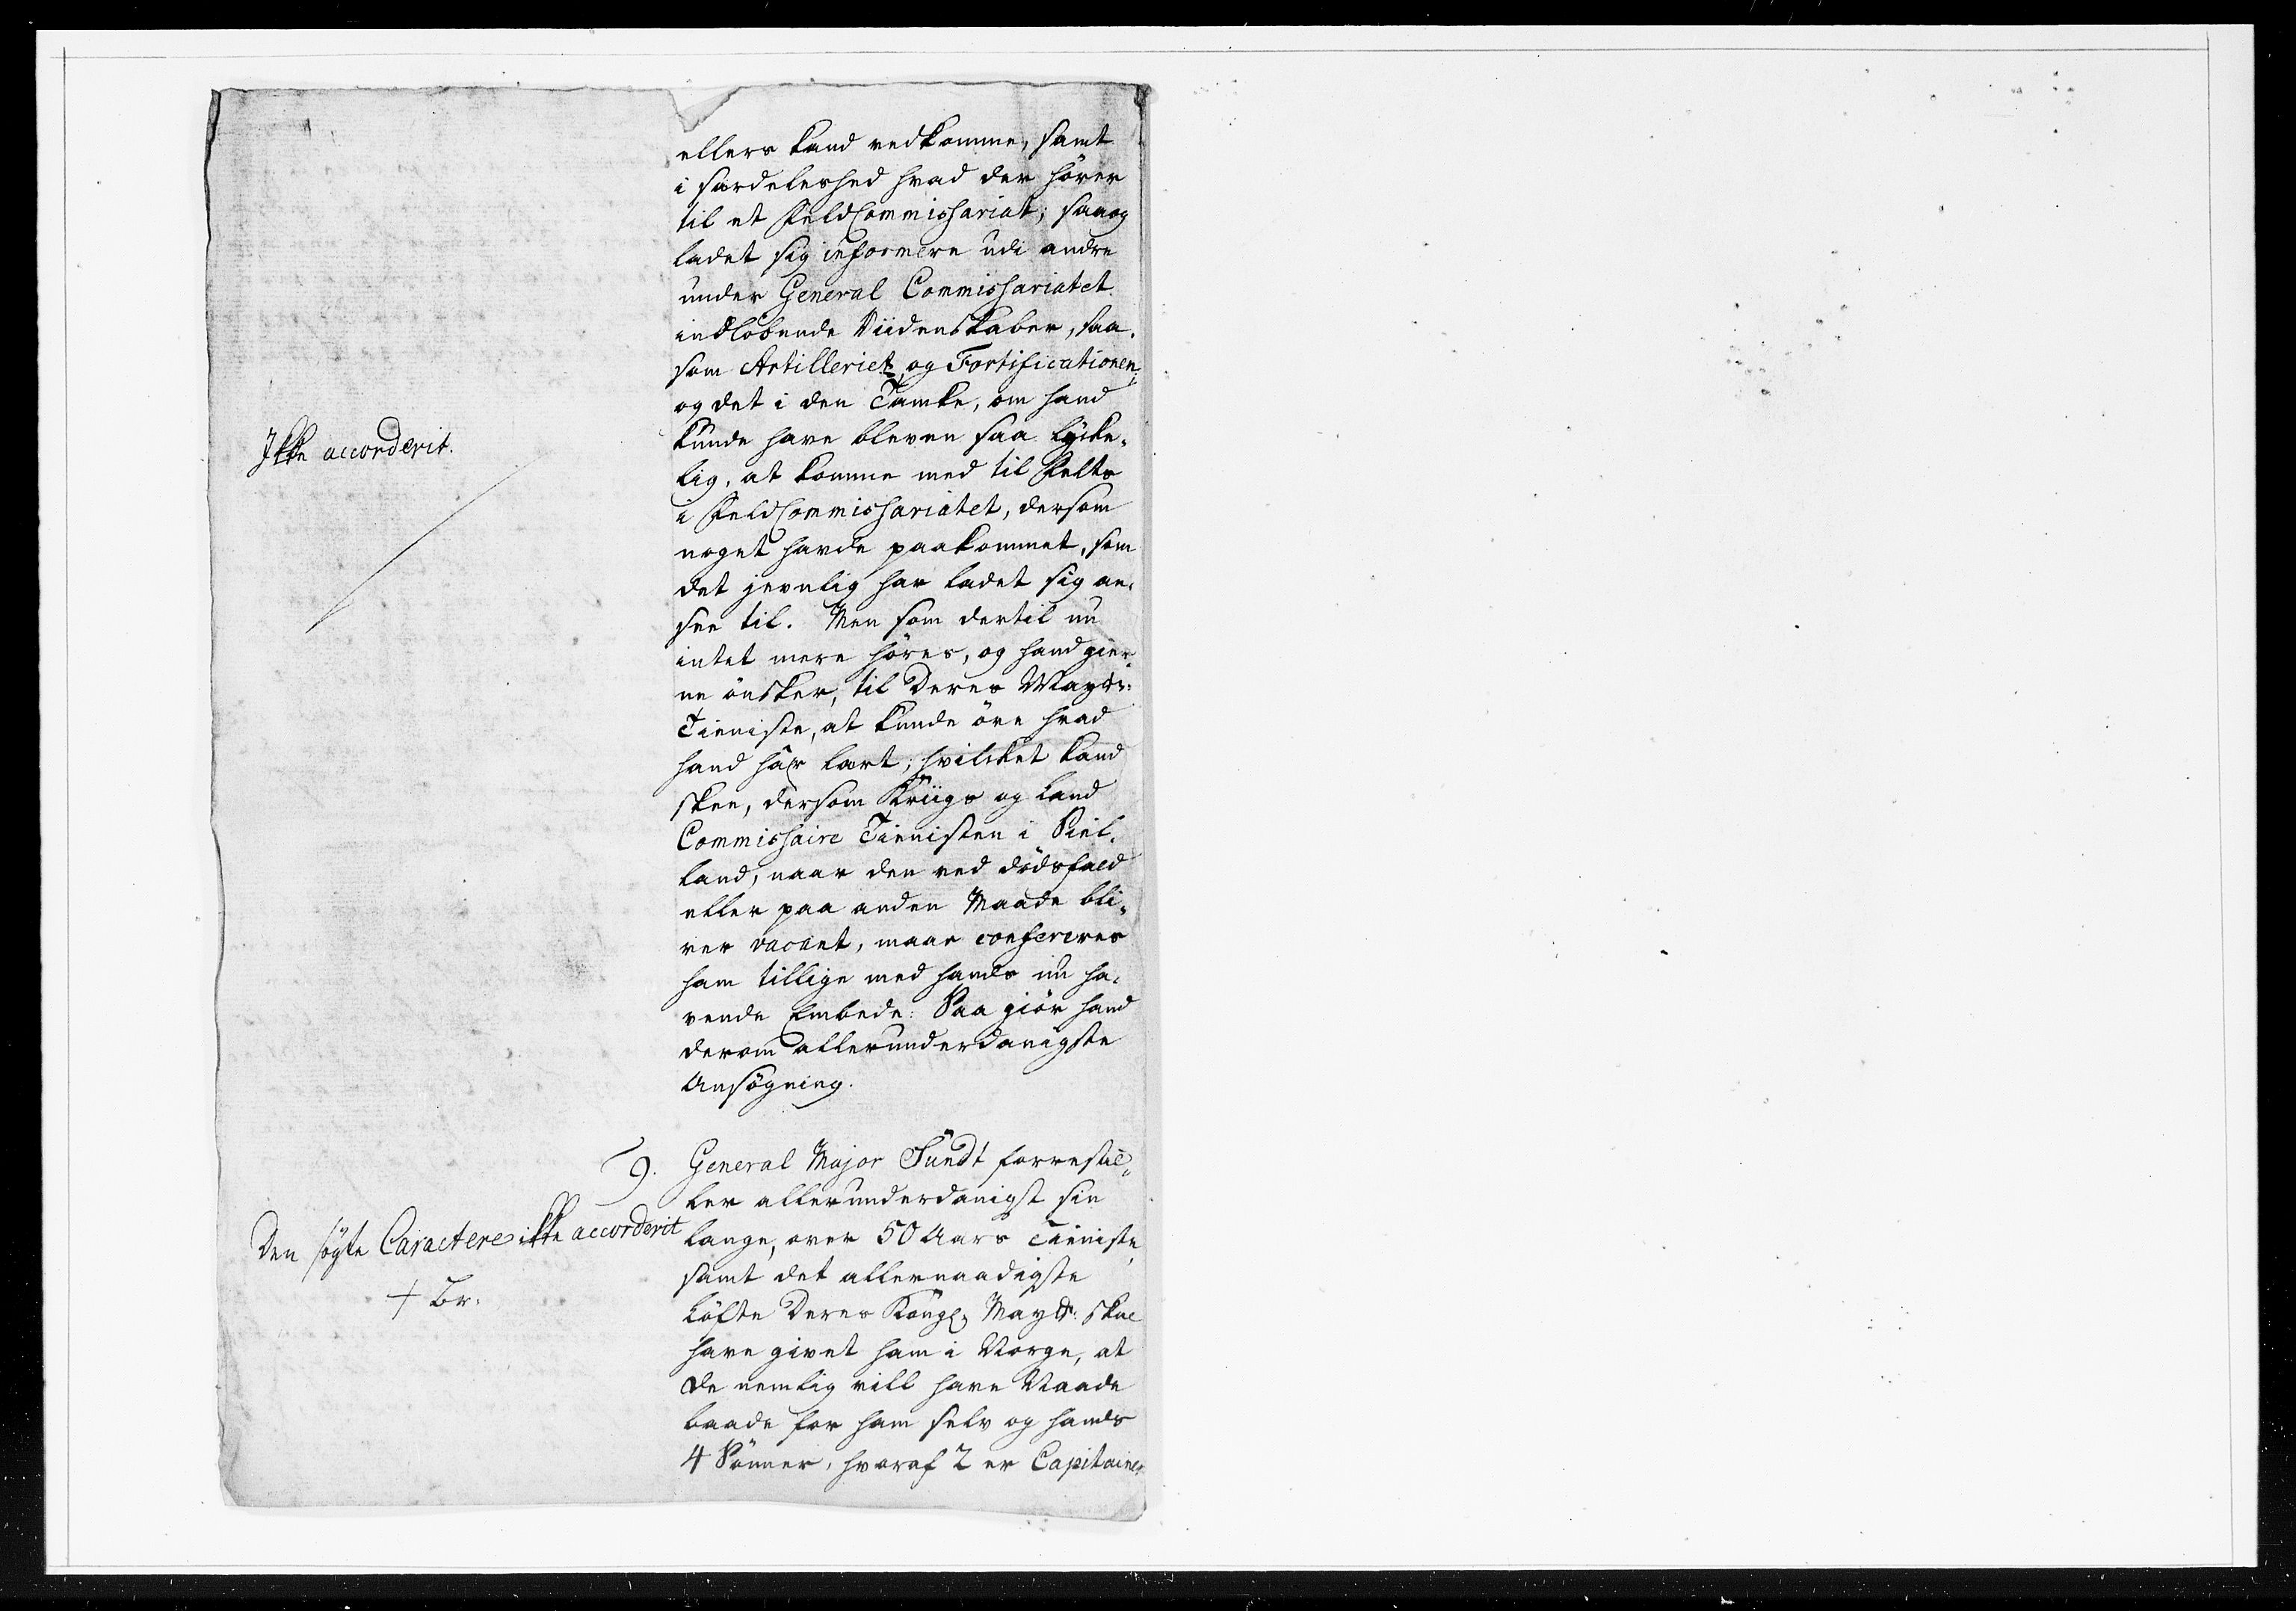 ellers kand vedkomme, samt
i særdeleshed hvad der hører
til et FeldCommissariat; saa og
ladet sig informere udi andre
under General Commissariatet
indløbende Viidenskaber, saa-
som Artilleriet og Fortificationen;
og det i den Tanke, om hand
kunde have bleven saa lykke-
lig, at komme med til Felts
Ikke accorderit.
i FeldCommissariatet, dersom
noget havde paakommet, som
det jevnlig har ladet sig an-
see til. Men som dertil nu
intet mere høres, og hand gier-
ne ønsker, til Deres Mayts:
Tieniste, at kunde øve hvad
hand har lært; hvilcket kand
skee, dersom Kriigs og Land
Commissaire Tienisten i Siel-
land, naar den ved dødsfald
eller paa anden Maade bli-
ver vacant, maae confereres
ham tillige med hands nu ha-
vende Embede: Saa giør hand
derom allerunderdanigste
Ansøgning.
9. General Major Sundt forrestil-
ler allerunderdanigst sin
lange, over 50 Aars Tieniste,
samt det allernaadigste
Løfte Deres Kongl. Mayt: skal
have givet ham i Norge, at
De nemlig vill have Naade
baade for ham selv og hands
4 Sønner, hvoraf 2 er Capitainer
Den søgte Caractere ikke accorderit
+ Br.